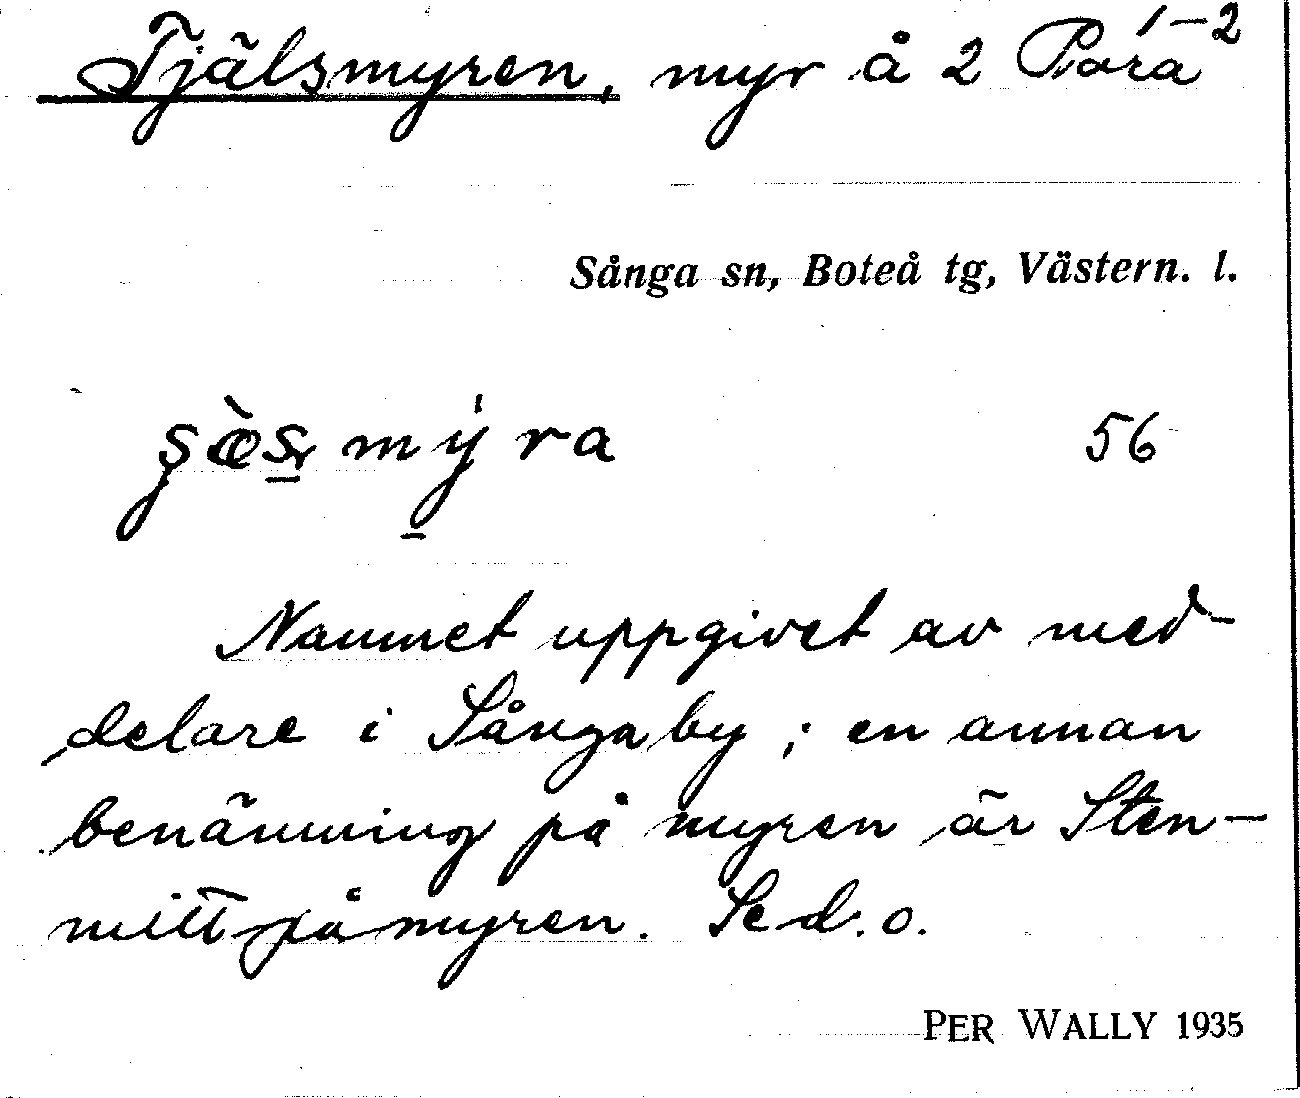 Tjälsmyren, myr å 2 Para 1-2
Sånga sn, Boteå tg, Västern. l.
56
Namnet uppgivet av med-
delare i Sånga by; en annan
benämning på myren är Sten-
mittpåmyren. Se d. o.
PER WALLY 1935